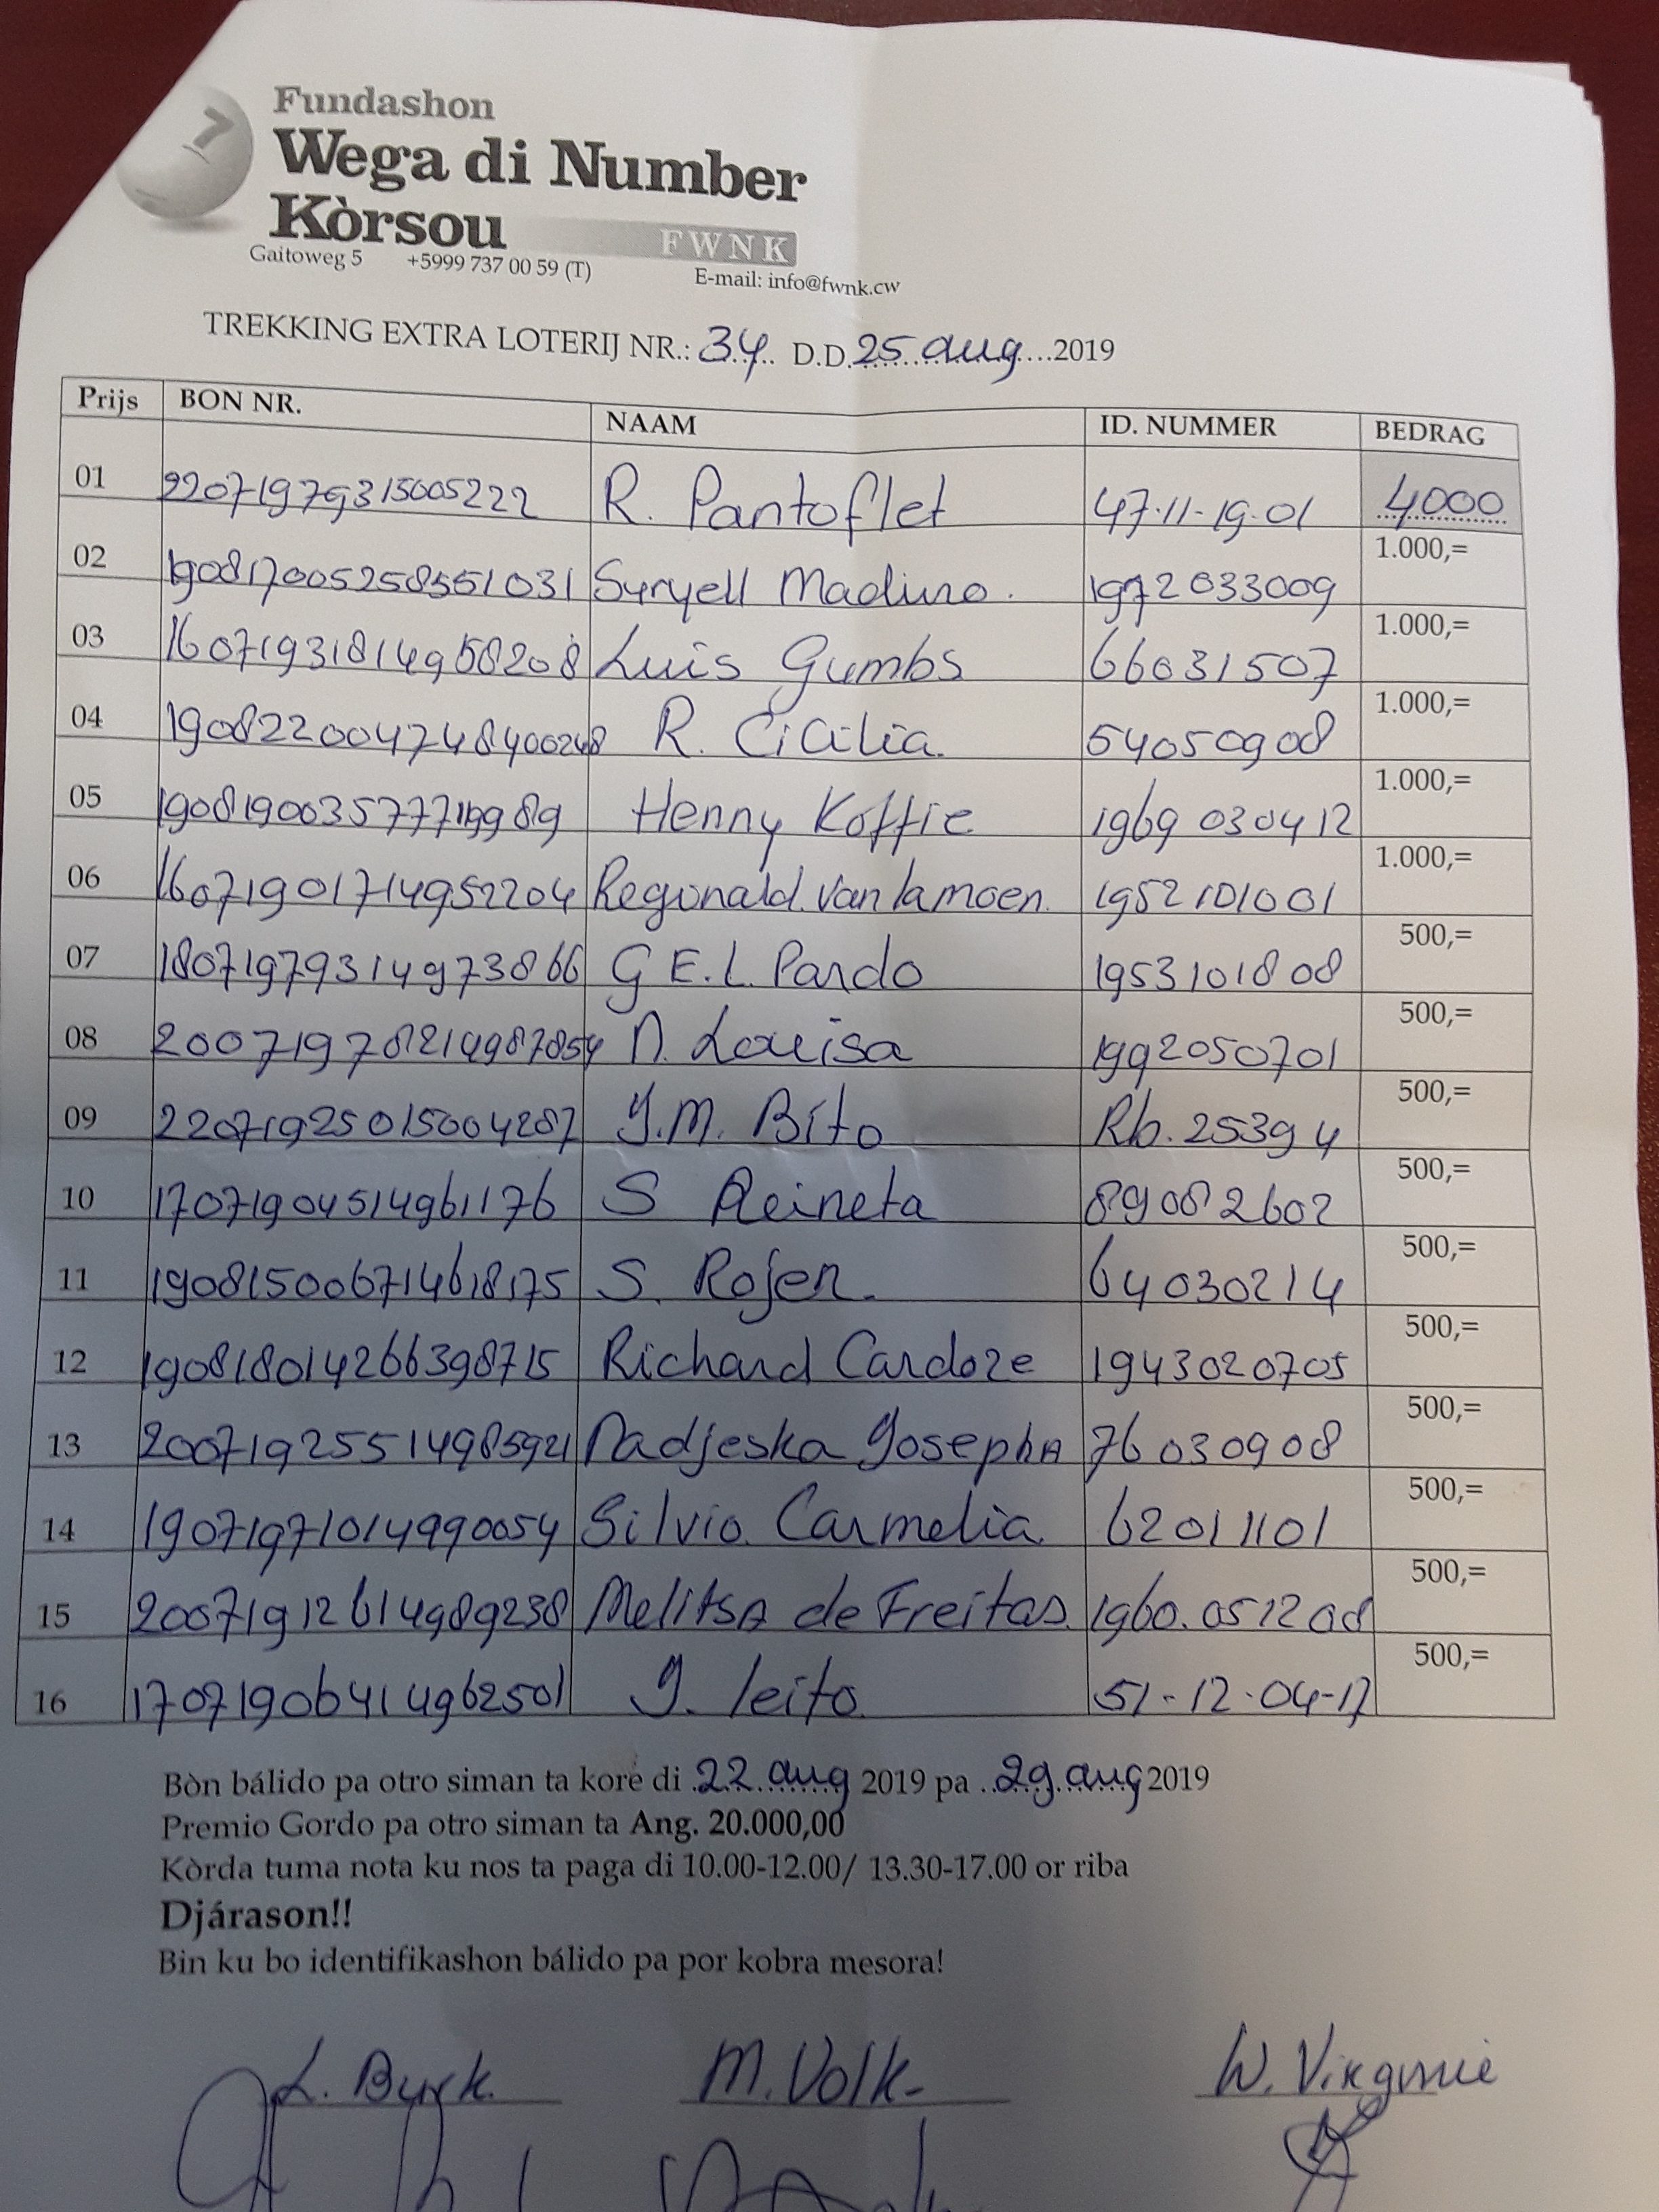 7
Fundashon
Wega di Number
Kòrsou
FWNK
Gaitoweg 5 +5999 737 00 59 (T) E-mail: info@fwnk.cw
TREKKING EXTRA LOTERIJ NR.: 34 D.D. 25 aug 2019
Prijs BON NR. NAAM ID. NUMMER BEDRAG
01 22071979315005222 R. Pantoflet 47-11-19-01 4000
02 1908170052585 51031 Suryell Maduro. 1972033009 1.000,=
03 16071931814958208 Luis Gumbs 66031507 1.000,=
04 1908220047 48400248 R. Cicilia. 54050908 1.000,=
05 Henny Koffie 1969 030412 1.000,=
06 16071901714952204 Regunald van lamoen. 1952101001 1.000,=
07 18071979314973866 G E.L. Pardo 1953101808 500,=
08 20071978214987854 N. Louisa 1992050701 500,=
09 22071925015004287 J.M. Bito Rb. 25394 500,=
10 17071904514961176 S Reineta 89082602 500,=
11 1908150067146 18175 S. Rojer. 64030214 500,=
12 190818014266398715 Richard Cardoze 1943020705 500,=
13 20071925514985921 Nadjeska Josepha 76030908 500,=
14 19071971014990054 Silvio Carmelia 62011101 500,=
15 20071912614989238 Melitsa de Freitas. 1960.051208 500,=
16 17071906414962501 J. leito 51-12-04-17 500,=
Bòn bálido pa otro siman ta kore di 22 aug 2019 pa 29 aug 2019
Premio Gordo pa otro siman ta Ang. 20.000,00
Kòrda tuma nota ku nos ta paga di 10.00-12.00/ 13.30-17.00 or riba
Djárason!!
Bin ku bo identifikashon bálido pa por kobra mesora!
L. Byrk. M. Volk- W. Virginie